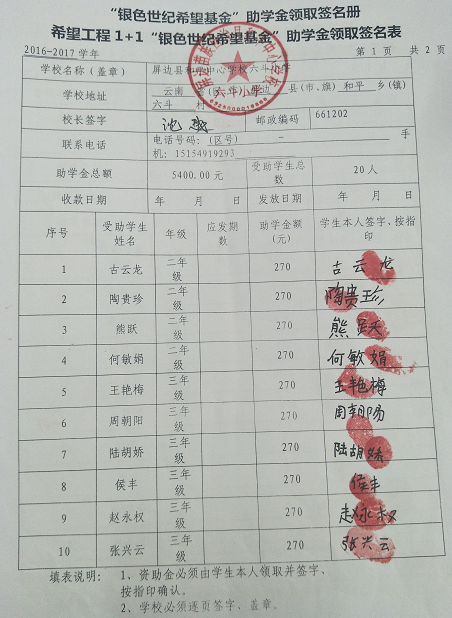 “银色世纪希望基金”助学金领取签名册
希望工程1+1“银色世纪希望基金”助学金领取签名表
2016-2017 学年 第 1 页 共 2 页
学校名称（盖章） 屏边县和平中心学校六斗小学
学校地址 云南 省（六斗）屏边 县（市、旗）和平 乡（镇）
六斗 村
校长签字 邮政编码 661202
联系电话 电话号码：（区号） - 手
机：15154919293
助学金总额 5400.00 元 受助学生总
数 20 人
收款日期 年 月 日 发放日期 年 月 日
序号 受助学生
姓名 年级 应发期
数 助学金额
（元） 学生本人签字、按指
印
1 古云龙 二年
级 270 古云龙
2 陶贵珍 二年
级 270 陶贵珍
3 熊跃 二年
级 270 熊跃
4 何敏娟 二年
级 270 何敏娟
5 王艳梅 三年
级 270 王艳梅
6 周朝阳 三年
级 270 周朝阳
7 陆胡娇 三年
级 270 陆胡娇
8 侯丰 三年
级 270 侯丰
9 赵永权 三年
级 270 赵永权
10 张兴云 三年
级 270 张兴云
填表说明： 1、资助金必须由学生本人领取并签字、
按指印确认。
2、学校必须逐页签字、盖章。